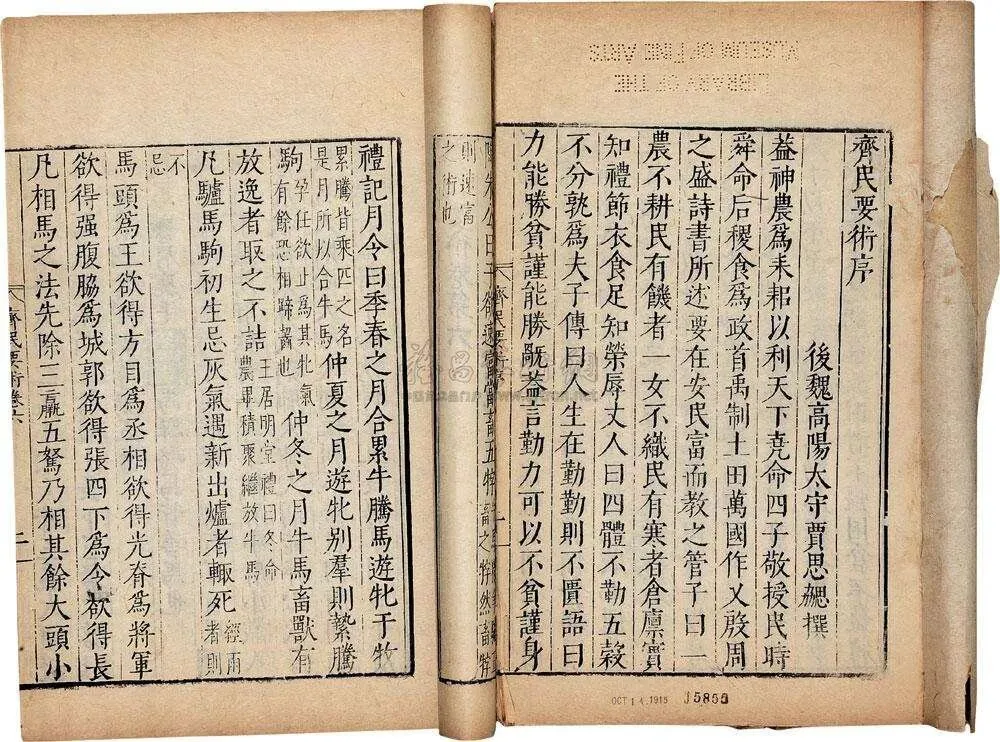 齊民要術序
後魏高陽太守賈思勰撰
葢神農爲耒耜以利天下堯命四子敬授民時
舜命后稷食爲政首禹制土田萬國作乂殷周
之盛詩書所述要在安民富而教之管子曰一
農不耕民有饑者一女不織民有寒者倉廪實
知禮節衣食足知榮辱丈人曰四體不勤五穀
不分孰爲夫子傳曰人生在勤勤則不匱語曰
力能勝貧謹能勝禍葢言勤力可以不貧謹身
齊民要術
則速富
之術也
禮記月令曰季春之月合累牛騰馬遊牝于牧
累騰皆乘匹之名
是月所以合牛馬
仲夏之月遊牝别羣則縶騰
駒
孕任欲止爲其牝氣
有餘恐相蹄齧也
仲冬之月牛馬畜獸有
放逸者取之不詰
王居明堂禮曰冬命
農畢積聚繼放牛馬
凡驢馬駒初生忌灰氣遇新出爐者輒死
經雨
者則
不
忌
馬頭爲王欲得方目爲丞相欲得光脊爲將軍
欲得强腹脇爲城郭欲得張四下爲令欲得長
凡相馬之法先除三羸五駑乃相其餘大頭小
齊民要術卷六
二
LIBRARY OF THE
MUSEUM OF FINE ARTS
OCT 14 1915
J5855